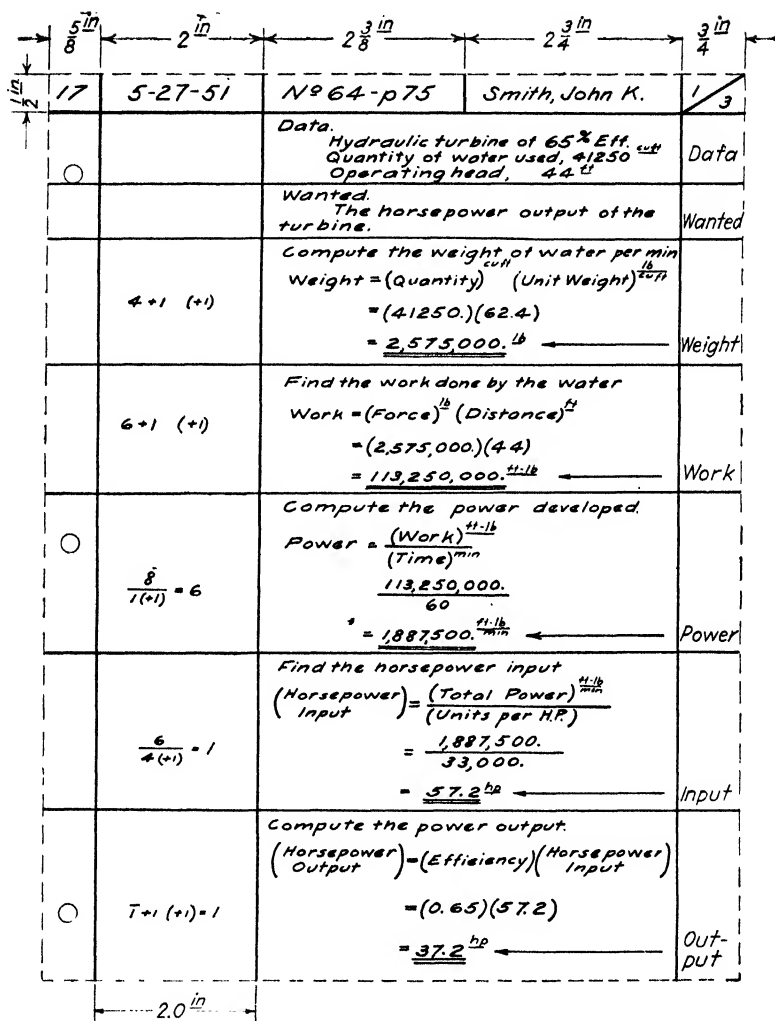 5/8 in 2 in 2 3/8 in 2 3/4 in 3/4 in
1/2 in
17 5-27-51 Nº 64-p75 Smith, John K. 1/3
Data.
Hydraulic turbine of 65% Eff.
Quantity of water used, 41250 cuft
Operating head, 44 ft
Data
Wanted.
The horsepower output of the
turbine.
Wanted
Compute the weight of water per min
Weight = (Quantity) cuft (Unit Weight) lb/cuft
4+1 (+1)
= (41250.)(62.4)
= 2,575,000. lb
Weight
Find the work done by the water
6+1 (+1)
Work = (Force) lb (Distance) ft
= (2,575,000.)(44)
= 113,250,000. ft-lb
Work
Compute the power developed.
Power = (Work) ft-lb / (Time) min
8 / 1(+1) = 6
113,250,000. / 60
= 1,887,500. ft-lb/min
Power
Find the horsepower input
(Horsepower Input) = (Total Power) ft-lb/min / (Units per H.P.)
6 / 4(+1) = 1
= 1,887,500. / 33,000.
= 57.2 hp
Input
Compute the power output.
(Horsepower Output) = (Efficiency)(Horsepower Input)
1+1 (+1) = 1
= (0.65)(57.2)
= 37.2 hp
Out-
put
2.0 in